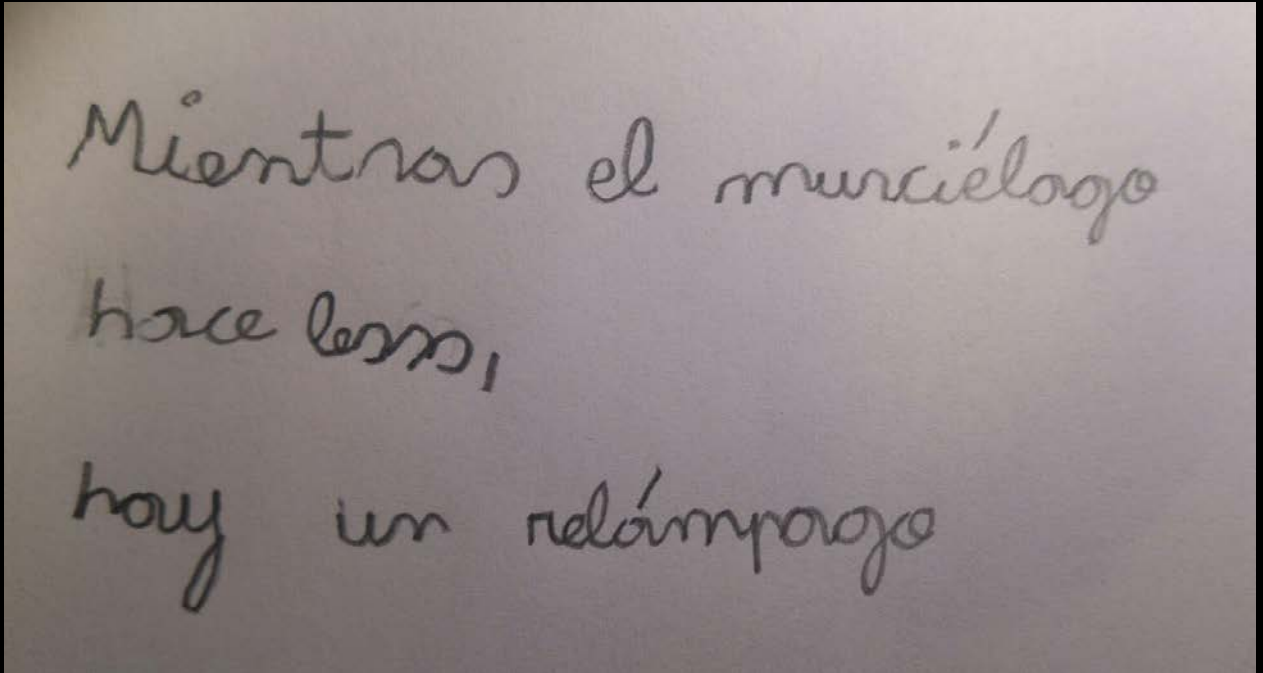 Mientras el murciélago
hace less,
hay un relámpago